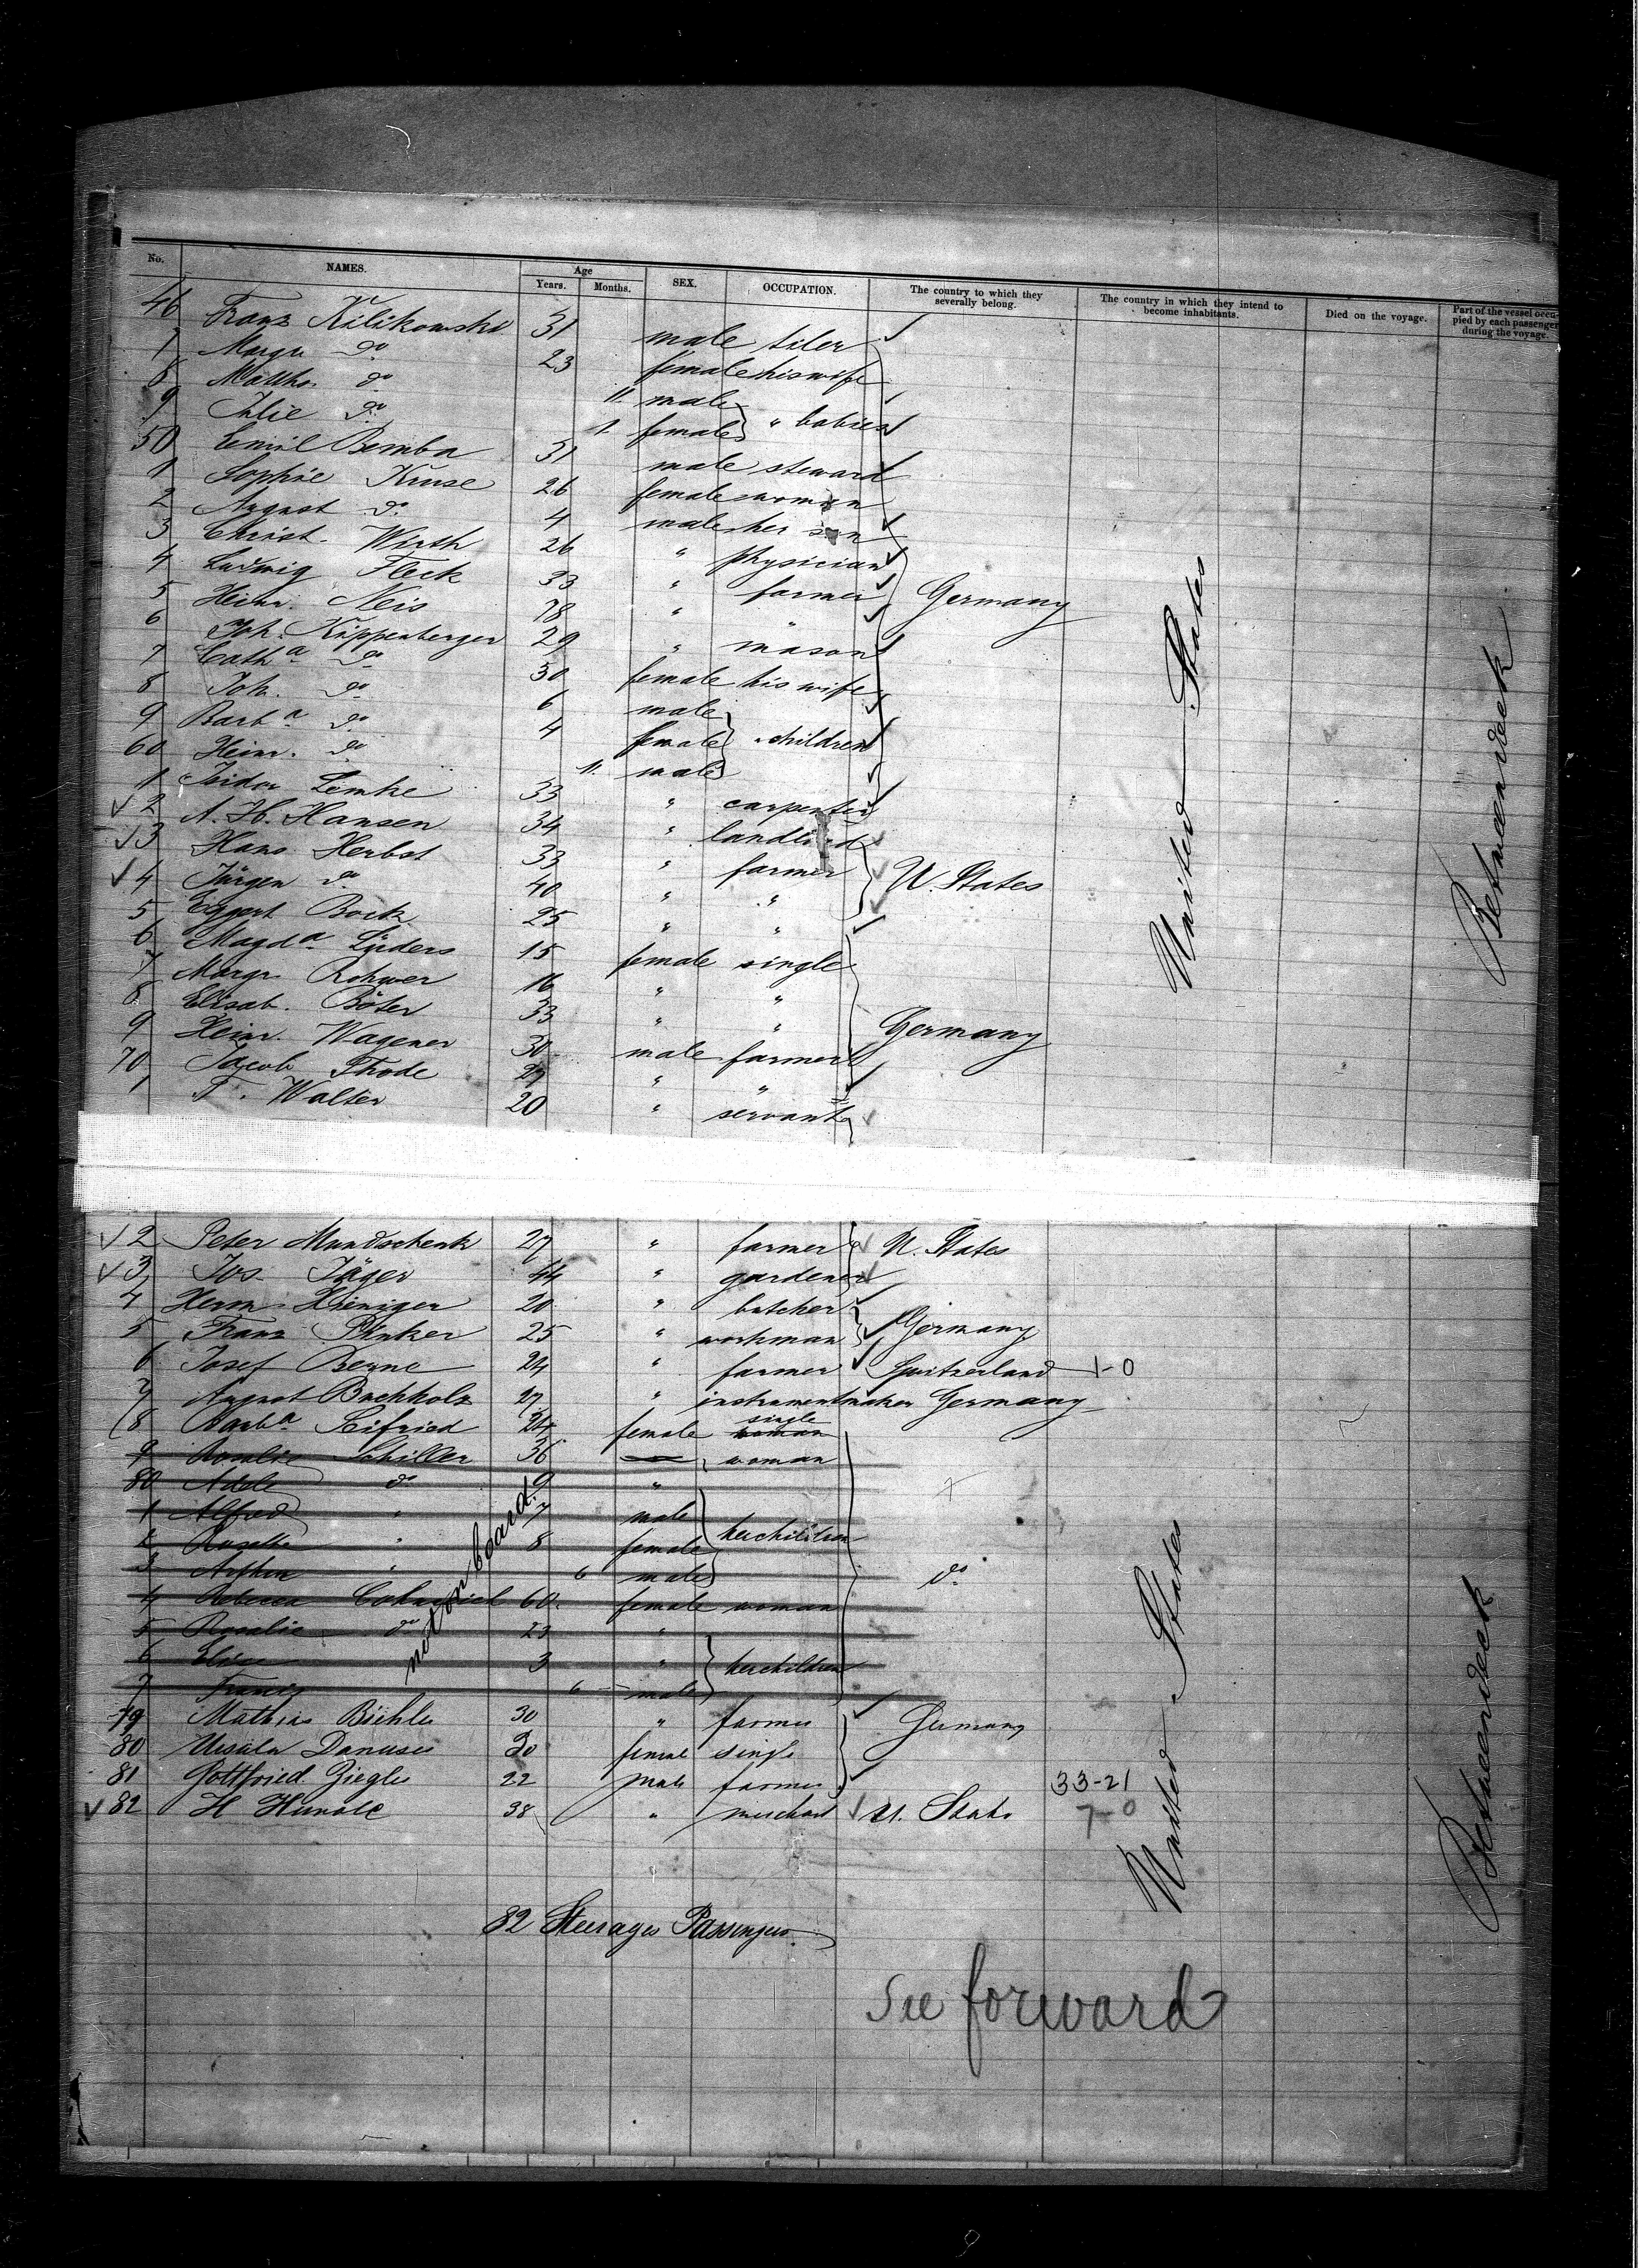 No. NAMES. Age Years. Months. SEX. OCCUPATION. The country to which they severally belong. The country in which they intend to become inhabitants. Died on the voyage. Part of the vessel occupied by each passenger during the voyage.
46 Franz Kilikowski 31 male tiler
7 Margr do 23 female his wife
8 Matths. do 11 male
9 Julie do 1 female " babies
50 Emil Bemba 31 male steward
1 Sophie Kruse 26 female woman
2 August do 4 male her son
3 Christ. Wirth 26 " physician
4 Ludwig Fleck 33 " farmer Germany
5 Heinr. Neis 78 " "
6 Joh. Kippenberger 29 " mason
7 Catha do 30 female his wife
8 Joh. do 6 male
9 Barba do 4 female " children
60 Heinr. do 11 male
1 Isidor Lemke 33 " carpenter
2 A. H. Hansen 34 " landlord
3 Hans Herbst 33 " farmer U. States
4 Jürgen do 40 " "
5 Eggert Bock 25 " "
6 Magda Lüders 15 female single
7 Margr. Rohwer 16 " "
8 Elisab. Böter 33 " "
9 Heinr. Wagener 30 male farmer Germany
70 Jacob Thode 27 " "
1 T. Walter 20 " servant
United States
Between deck
2 Peter Mundschenk 27 " farmer U. States
3 Jos. Jäger 44 " gardener
4 Herm. Kieniger 20 " butcher
5 Franz Pinker 25 " workman Germany
6 Josef Berne 24 " farmer Switzerland 1-0
7 August Buchholz 27 " instrumentmaker Germany
8 Barba Seifried 24 female single woman
9 Rosalie Schiller 36 woman
80 Adele do 9 "
1 Alfred " 7 male
2 Rosetta " 8 female her children
3 Arthur " 6 male do
4 Rebecca 60 female woman
5 Rosalie do 23 "
6 Elise 3 " her children
7 Francis 6 male
not on board.
79 Mathias Biehle 30 " farmer Germany
80 Ursula Danuser 30 female single
81 Gottfried Ziegler 22 male farmer 33-21
82 H Hunold 38 " merchant U. States 7-0
United States
Between deck
82 Steerages Passengers.
See forward